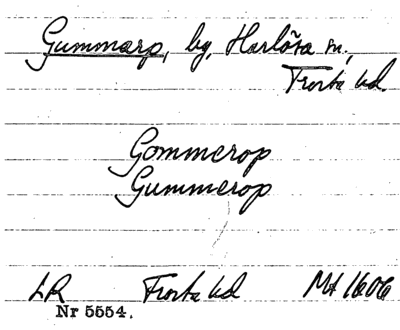 Gummarp, by, Harlösa sn,
Frosta hd.
Gommerop
Gummerop
LR Frosta hd Mt 1606
Nr 5554.